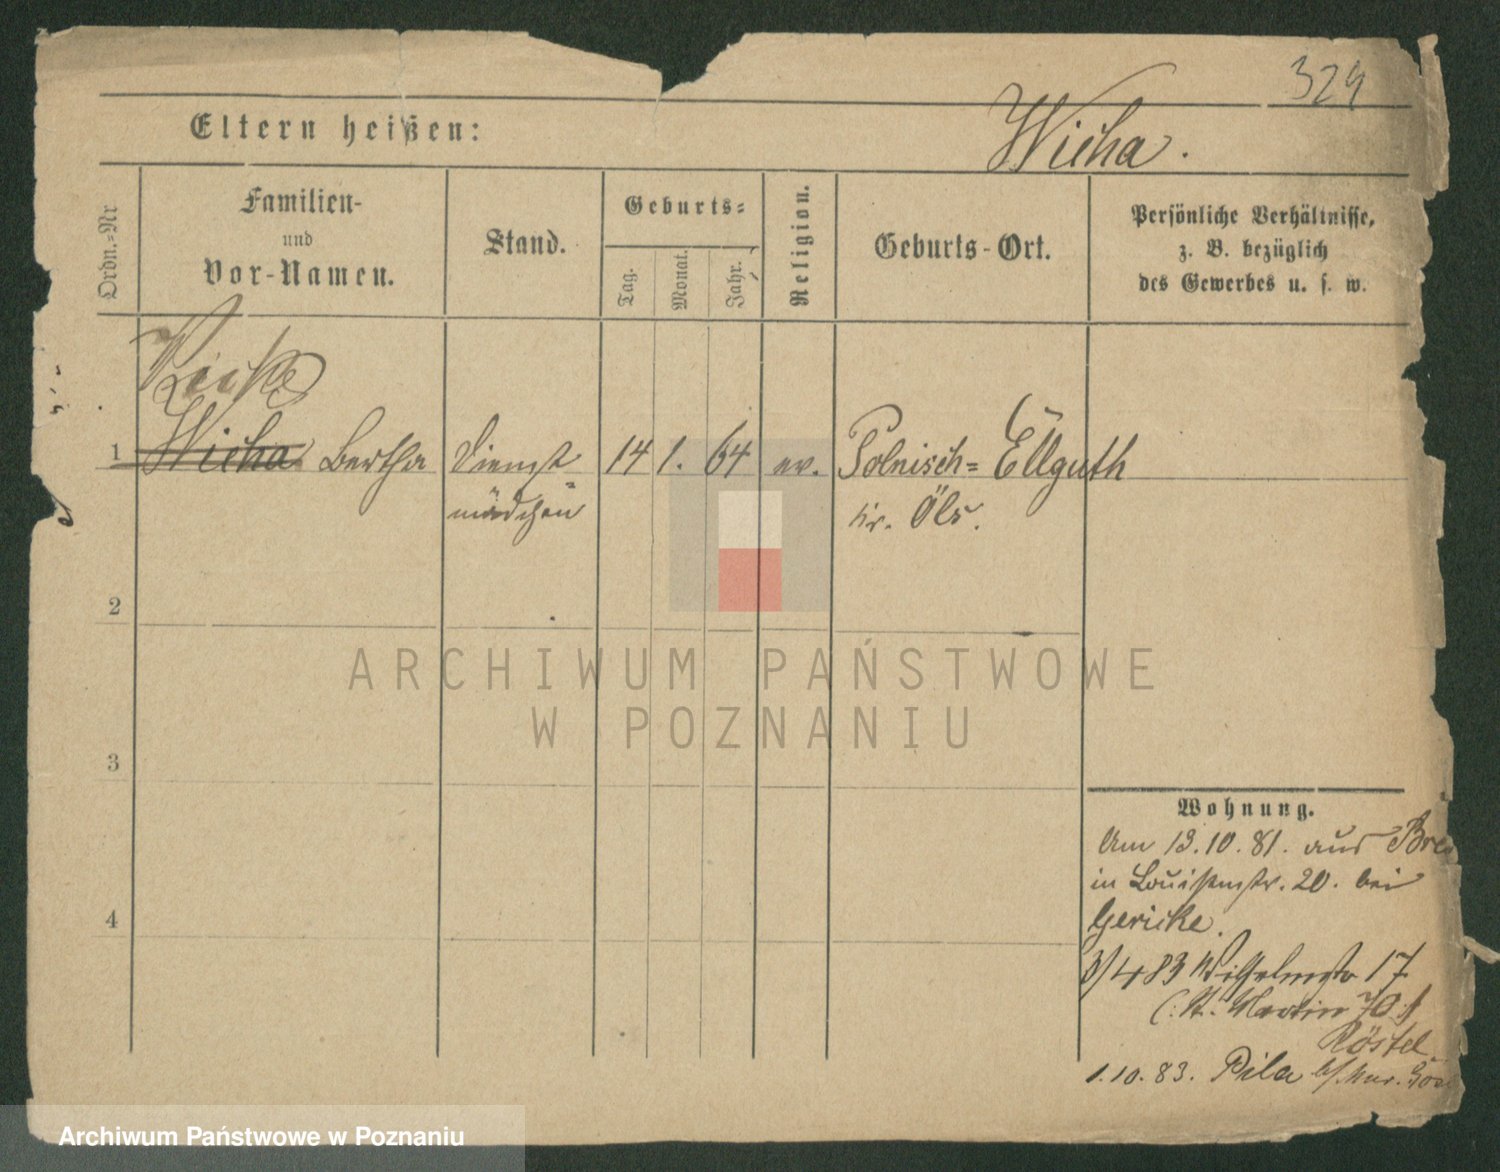 329
Eltern heißen:
Wicha.
Ordn.=Nr
Familien-
und
Vor-Namen.
Stand.
Geburts=
Tag.
Monat.
Jahr.
Religion.
Geburts-Ort.
Persönliche Verhältnisse,
z. B. bezüglich
des Gewerbes u. s. w.
1 Wicha Bertha Dienst= 14 1. 64 ev. Polnisch= Ellguth
mädchen Kr. Öls.
2
3
4
Wohnung.
Am 13.10.81. aus Bre
in Louisenstr. 20. bei
Gericke.
3/4 83 Wilhelmstr 17
(: St. Martin 70 :)
Röstel
1.10.83. Pila
ARCHIWUM PAŃSTWOWE
W POZNANIU
Archiwum Państwowe w Poznaniu